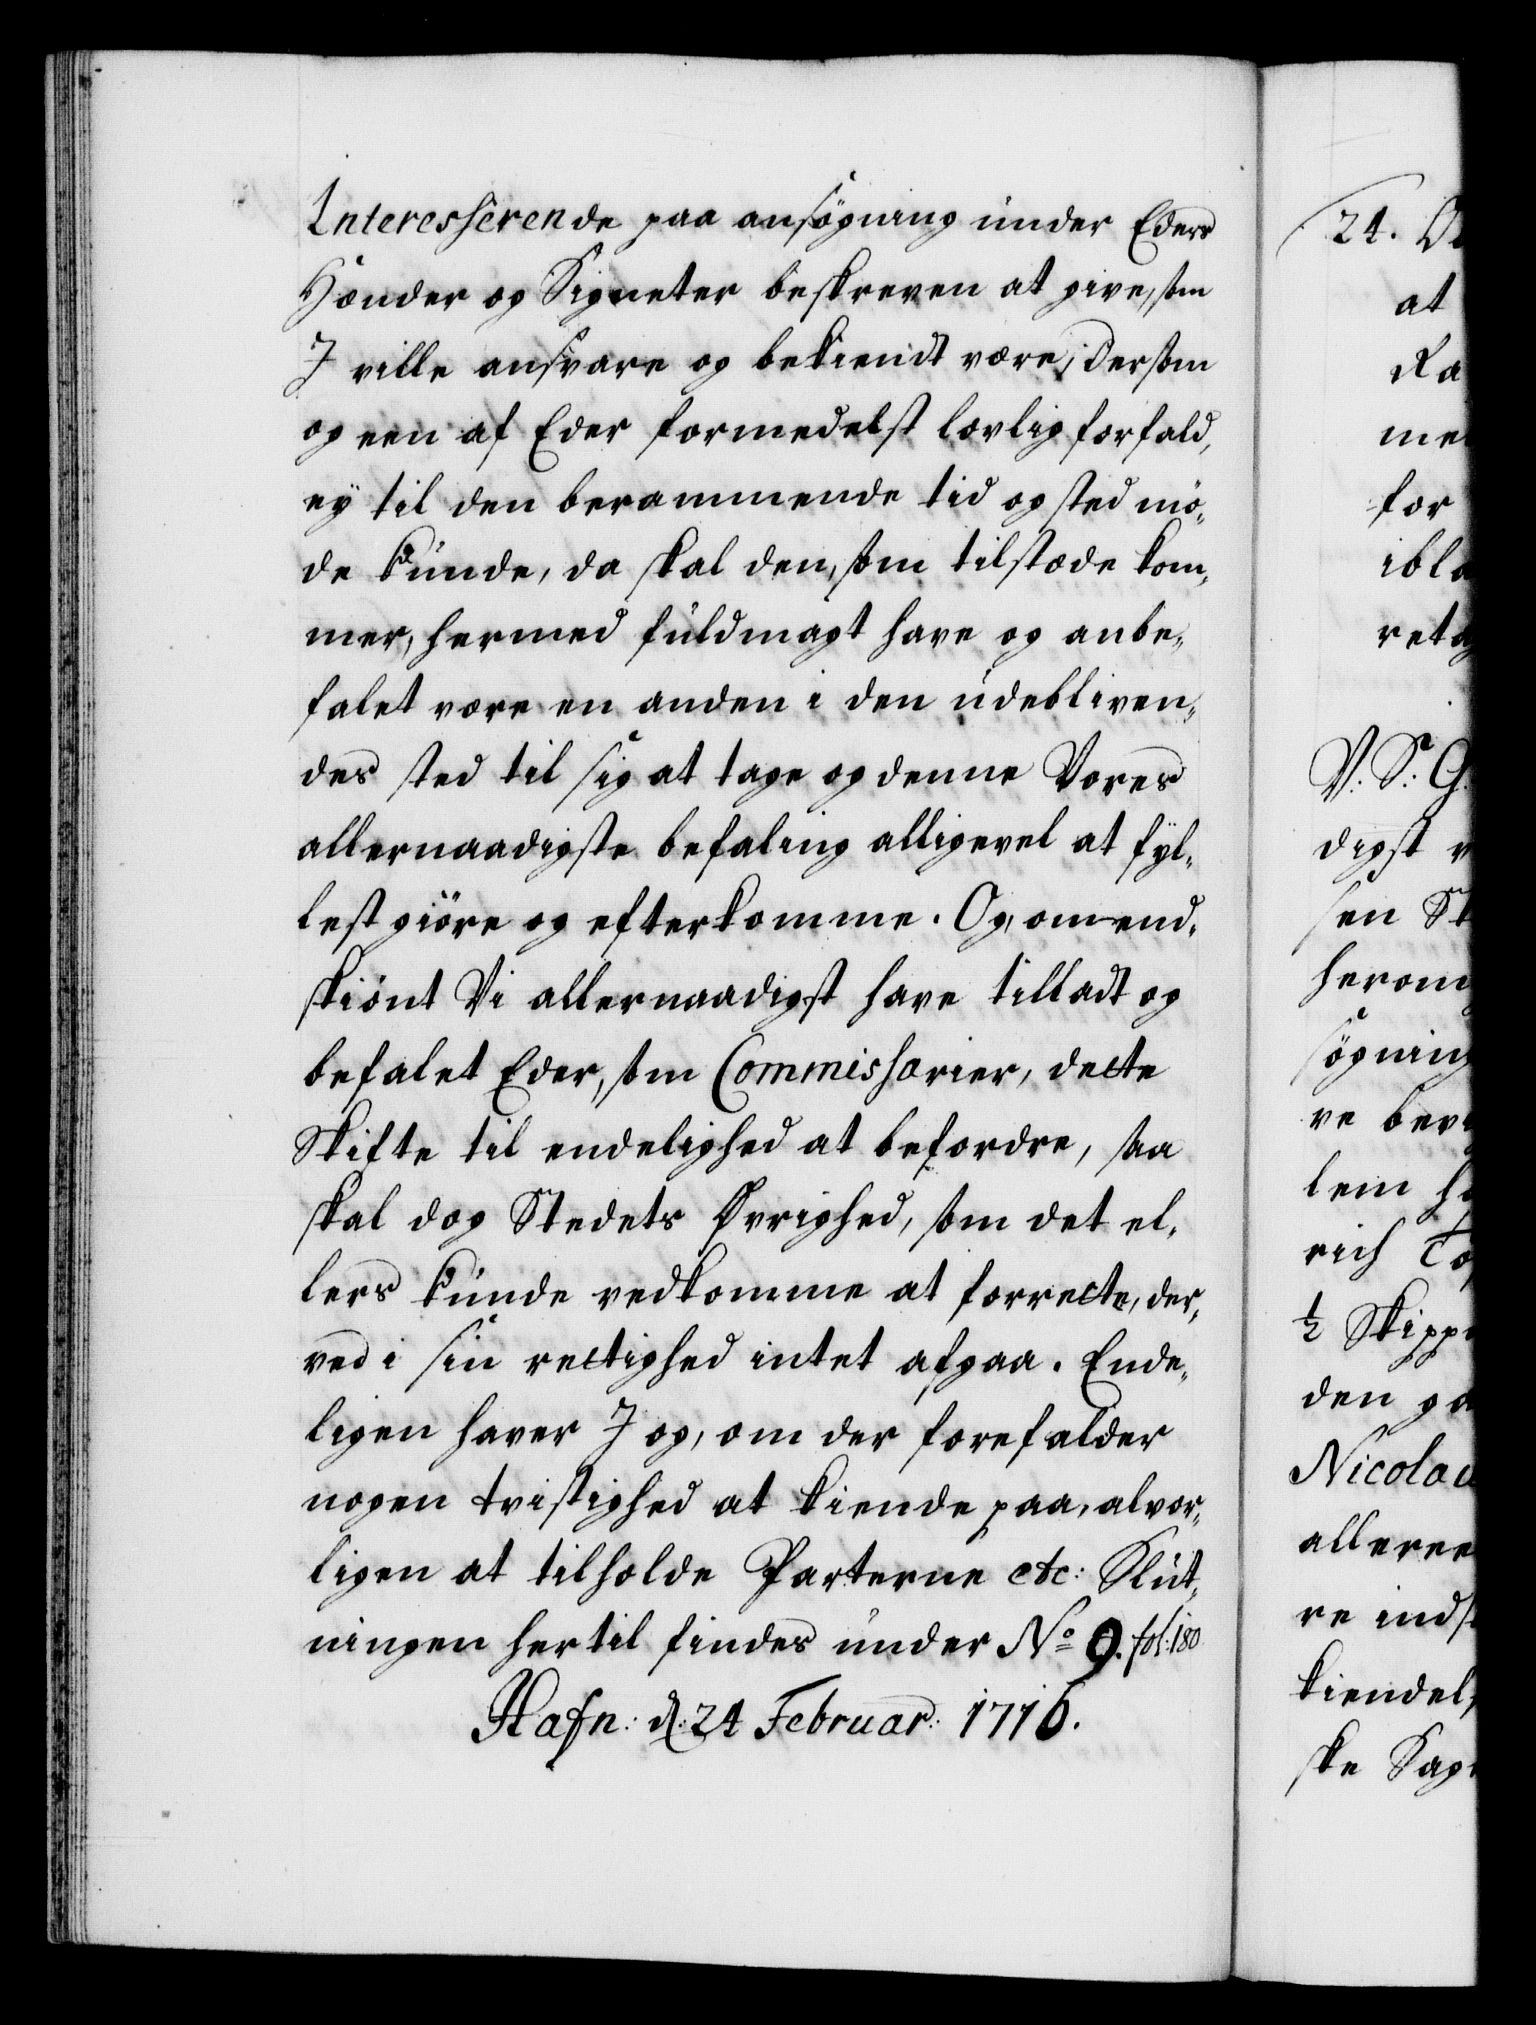 Interesserende paa ansøgning under Eders
Hænder og Signeter beskreven at give, som
I ville ansvare og bekiendt være; Dersom
og een af Eder formedelst lovlig forfald,
ey til den berammende tid og sted mø-
de kunde, da skal den, som tilstæde kom-
mer, hermed fuldmagt have og anbe-
falet være en anden i den udebliven-
des sted til sig at tage og denne Vores
allernaadigste befaling alligevel at fyl-
lest giöre og efterkomme. Og, omend-
skiönt Vi allernaadigst have tilladt og
befalet Eder, som Commissarier, dette
Skifte til endelighed at befordre, saa
skal dog Stedets Øvrighed, som det el-
lers kunde vedkomme at forrette, der-
ved i sin rettighed intet afgaa. Ende-
ligen haver I og, om der forefalder
nogen tvistighed at kiende paa, alvor-
ligen at tilholde Parterne etc: Slut-
ningen hertil findes under No 9. fol: 180
Hafn: d: 24 Februar: 1716.
24.
at
Ra
me
for
ibla
ret
V: S: G.
digst
sen St
herom
søgning
ve bev
lem
rich
1/2 Skipp
den ga
Nicola
alleree
re inds
kiendel
ske Sag